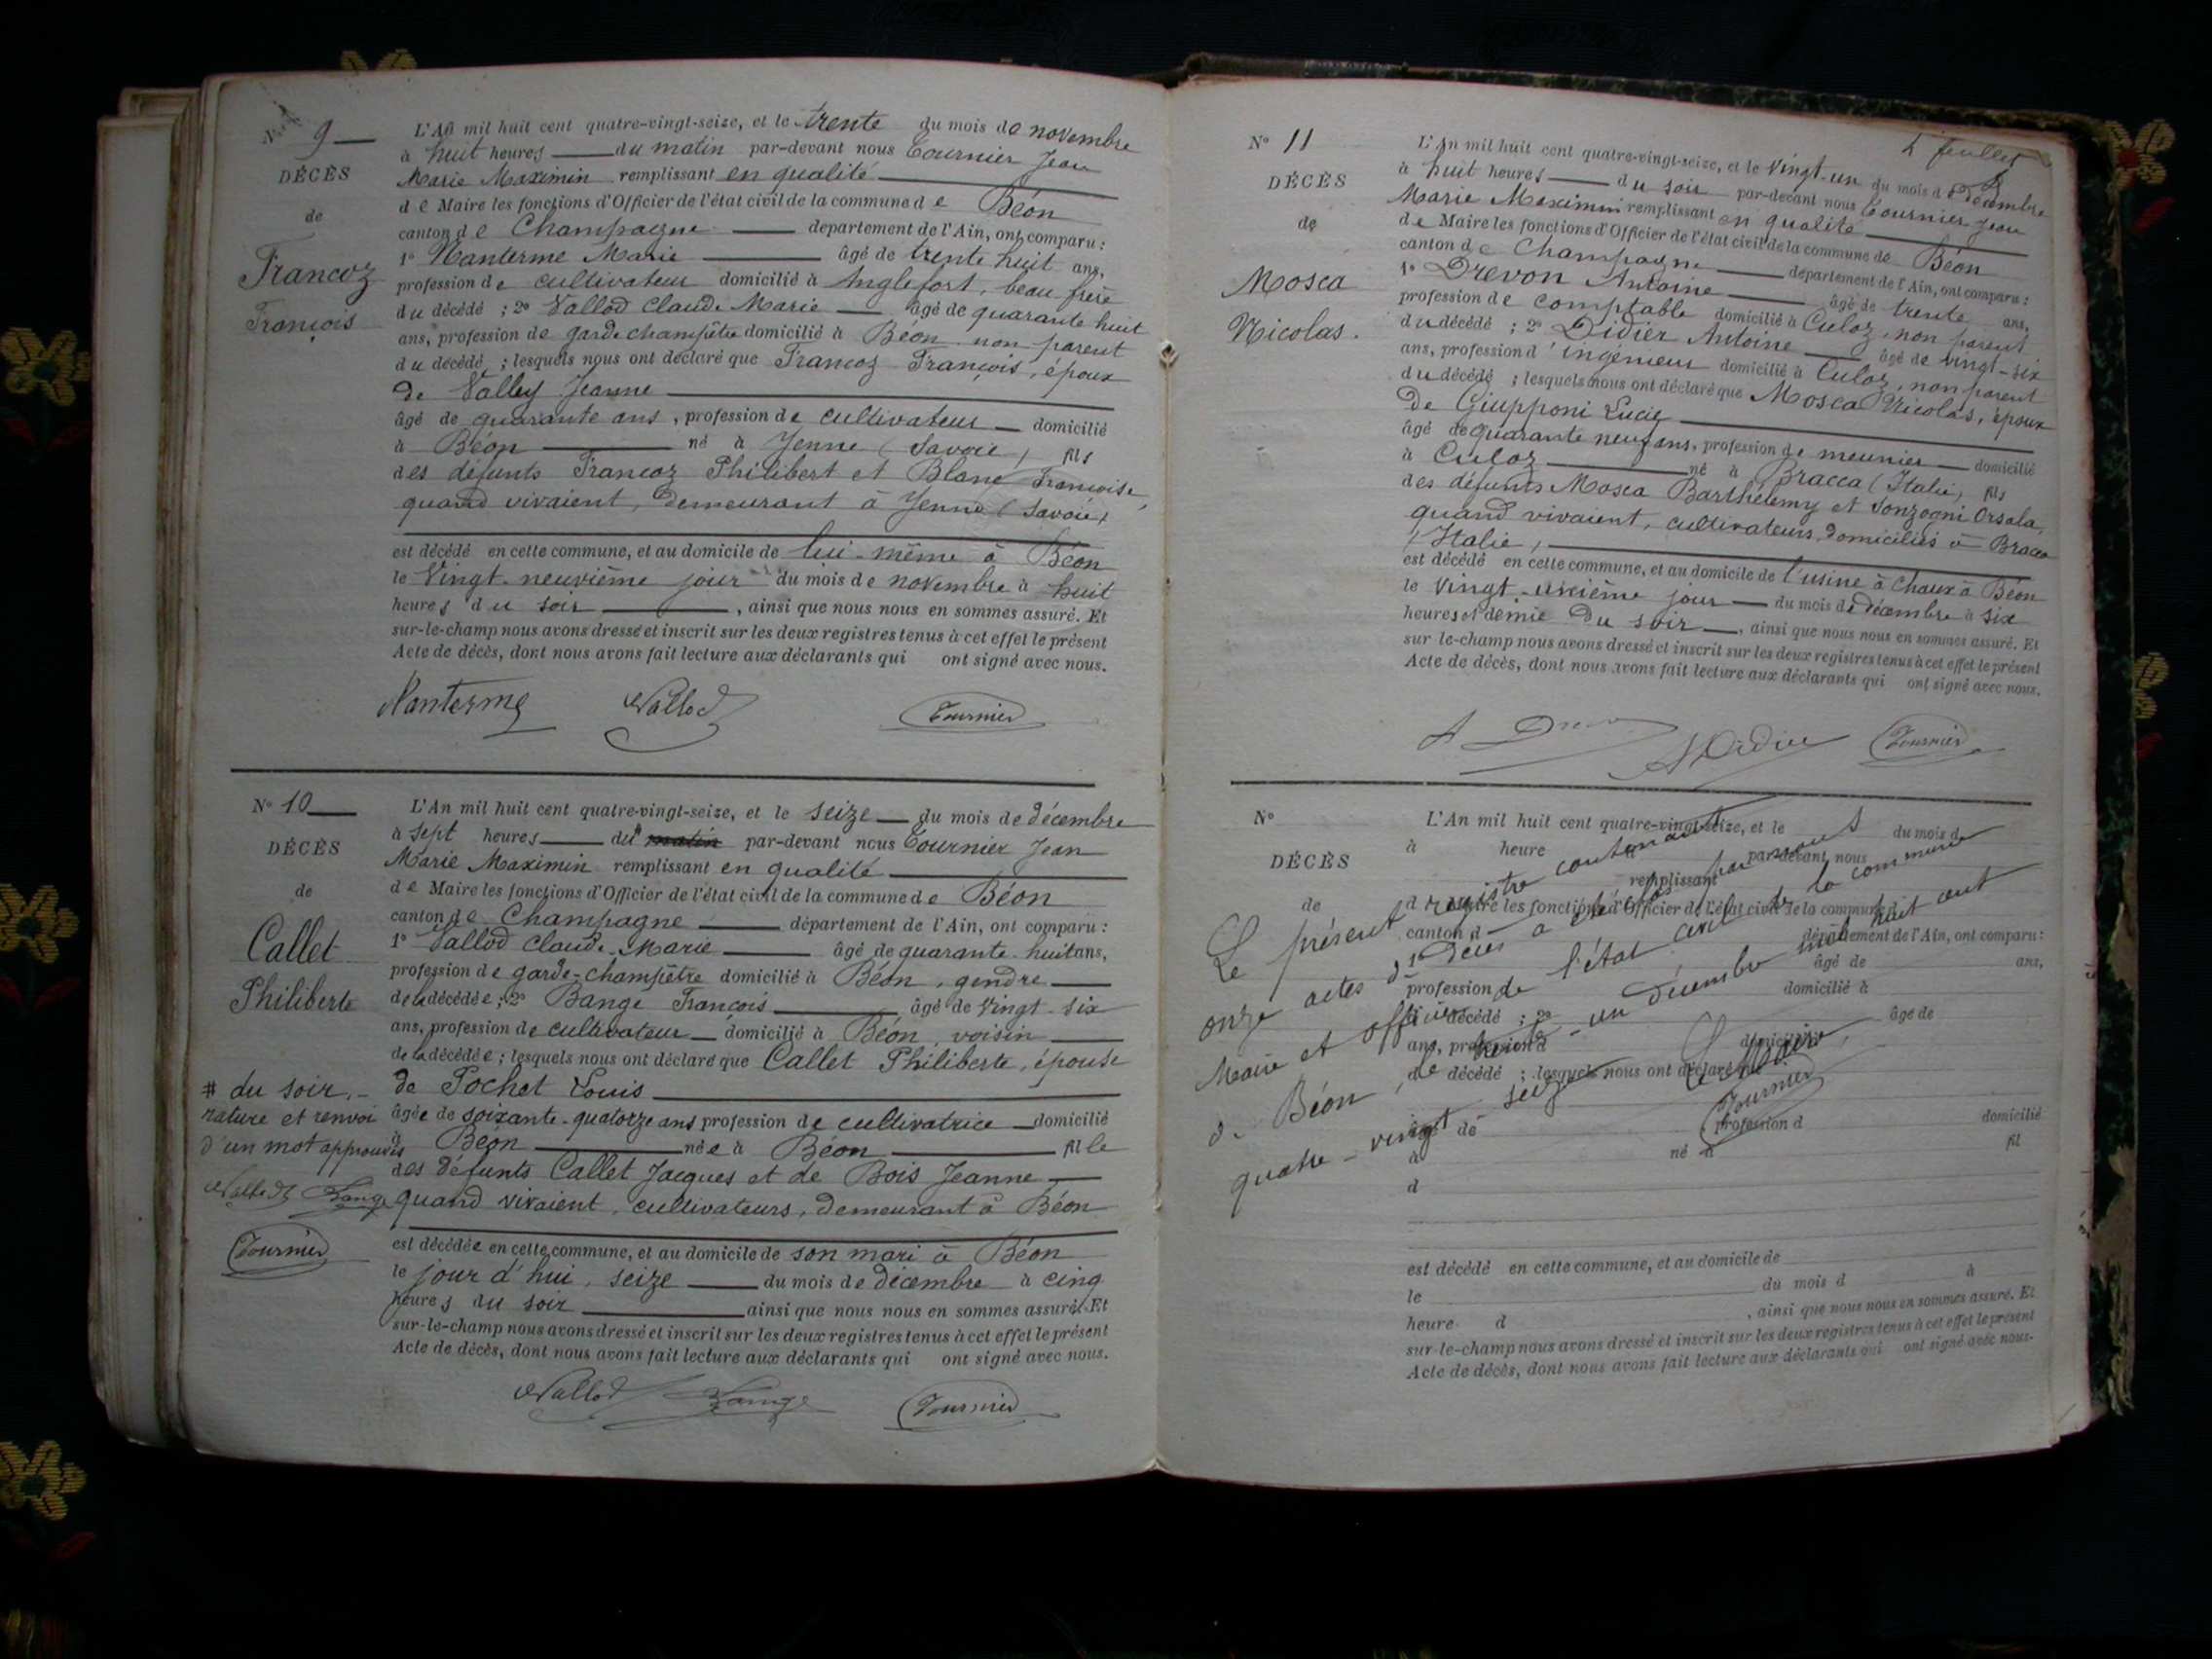 N° 9
DÉCÈS
de
Francoz
François
L'An mil huit cent quatre-vingt-seize, et le trente du mois de novembre
à huit heures du matin par-devant nous Tournier Jean
Marie Maximin remplissant en qualité
de Maire les fonctions d'Officier de l'état civil de la commune de Béon
canton de Champagne département de l'Ain, ont comparu :
1° Nanterme Marie âgé de trente huit ans,
profession de cultivateur domicilié à Anglefort, beau frère
du décédé ; 2° Vallod Claude Marie âgé de quarante huit
ans, profession de garde champêtre domicilié à Béon non parent
du décédé ; lesquels nous ont déclaré que Francoz François, époux
de Valley Jeanne
âgé de quarante ans, profession de cultivateur domicilié
à Béon né à Yenne (Savoie) fils
des défunts Francoz Philibert et Blanc Françoise,
quand vivaient, demeurant à Yenne (Savoie)
est décédé en cette commune, et au domicile de lui-même à Béon
le Vingt-neuvième jour du mois de novembre à huit
heures du soir, ainsi que nous nous en sommes assuré. Et
sur-le-champ nous avons dressé et inscrit sur les deux registres tenus à cet effet le présent
Acte de décès, dont nous avons fait lecture aux déclarants qui ont signé avec nous.
Nanterme Vallod Tournier
N° 10
DÉCÈS
de
Callet
Philiberte
# du soir.
rature et renvoi
d'un mot approuvés
Vallod Bange
Tournier
L'An mil huit cent quatre-vingt-seize, et le seize du mois de décembre
à sept heures du # matin par-devant nous Tournier Jean
Marie Maximin remplissant en qualité
de Maire les fonctions d'Officier de l'état civil de la commune de Béon
canton de Champagne département de l'Ain, ont comparu :
1° Vallod Claude-Marie âgé de quarante-huit ans,
profession de garde-champêtre domicilié à Béon, gendre
de la décédée ; 2° Bange François âgé de Vingt-six
ans, profession de cultivateur domicilié à Béon, voisin
de la décédée ; lesquels nous ont déclaré que Callet Philiberte, épouse
de Pochet Louis
âgée de soixante-quatorze ans profession de cultivatrice domicilié
à Béon née à Béon fille
des défunts Callet Jacques et de Bois Jeanne
quand vivaient, cultivateurs, demeurant à Béon
est décédée en cette commune, et au domicile de son mari à Béon
le jour d'hui, seize du mois de décembre à cinq
heures du soir ainsi que nous nous en sommes assuré. Et
sur-le-champ nous avons dressé et inscrit sur les deux registres tenus à cet effet le présent
Acte de décès, dont nous avons fait lecture aux déclarants qui ont signé avec nous.
Vallod Bange Tournier
4 feuillet
N° 11
DÉCÈS
de
Mosca
Nicolas.
L'An mil huit cent quatre-vingt-seize, et le Vingt-un du mois de Décembre
à huit heures du soir par-devant nous Tournier Jean
Marie Maximin remplissant en qualité
de Maire les fonctions d'Officier de l'état civil de la commune de Béon
canton de Champagne département de l'Ain, ont comparu :
1° Drevon Antoine âgé de trente ans,
profession de comptable domicilié à Culoz, non parent
du décédé ; 2° Didier Antoine âgé de vingt-six
ans, profession d'ingénieur domicilié à Culoz, non parent
du décédé ; lesquels nous ont déclaré que Mosca Nicolas, époux
de Giupponi Lucie
âgé de quarante neuf ans, profession de meunier domicilié
à Culoz né à Bracca (Italie) fils
des défunts Mosca Barthélemy et Sonzogni Orsala,
quand vivaient, cultivateurs, domiciliés à Bracca
(Italie),
est décédé en cette commune, et au domicile de l'usine à Chaux à Béon
le Vingt-unième jour du mois de décembre à six
heures et demie du soir, ainsi que nous nous en sommes assuré. Et
sur-le-champ nous avons dressé et inscrit sur les deux registres tenus à cet effet le présent
Acte de décès, dont nous avons fait lecture aux déclarants qui ont signé avec nous.
A Didier Tournier
N°
DÉCÈS
de
L'An mil huit cent quatre-vingt-seize, et le du mois de
à heure d par-devant nous
remplissant
d Maire les fonctions d'Officier de l'état civil de la commune d
canton d département de l'Ain, ont comparu :
1° âgé de ans,
profession d domicilié à
d décédé ; 2° âgé de
ans, profession d domicilié à
d décédé ; lesquels nous ont déclaré que
âgé de profession d domicilié
à né à fil
d
est décédé en cette commune, et au domicile de
le du mois d à
heure d, ainsi que nous nous en sommes assuré. Et
sur-le-champ nous avons dressé et inscrit sur les deux registres tenus à cet effet le présent
Acte de décès, dont nous avons fait lecture aux déclarants qui ont signé avec nous.
Le présent registre contenant
onze actes de Décès a été clos par nous
Maire et officier de l'état civil de la commune
de Béon, le trente-un décembre mil huit cent
quatre-vingt seize
Le Maire,
Tournier